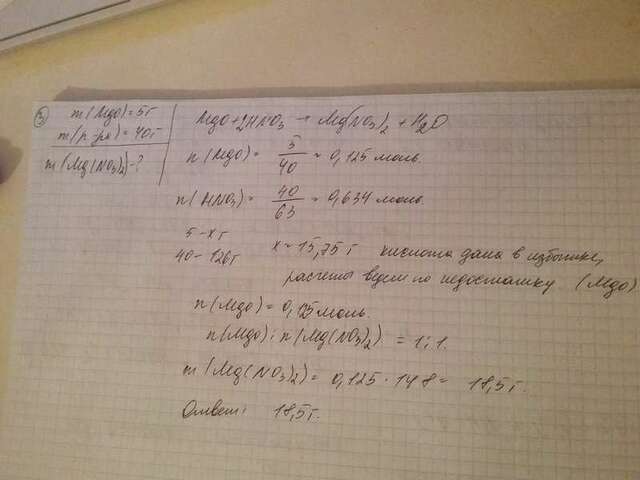 3
m(MgO)=5г
m(р-ра)=40г
m(Mg(NO₃)₂)-?
MgO+2HNO₃ → Mg(NO₃)₂+H₂O
n(MgO)= 5/40 = 0,125 моль.
n(HNO₃)= 40/63 = 0,634 моль.
5-xг
40-126г x=15,75г кислота дана в избытке,
расчеты ведем по недостатку (MgO)
n(MgO)=0,125 моль.
n(MgO):n(Mg(NO₃)₂) =1:1.
m(Mg(NO₃)₂)= 0,125·148= 18,5г.
Ответ: 18,5г.